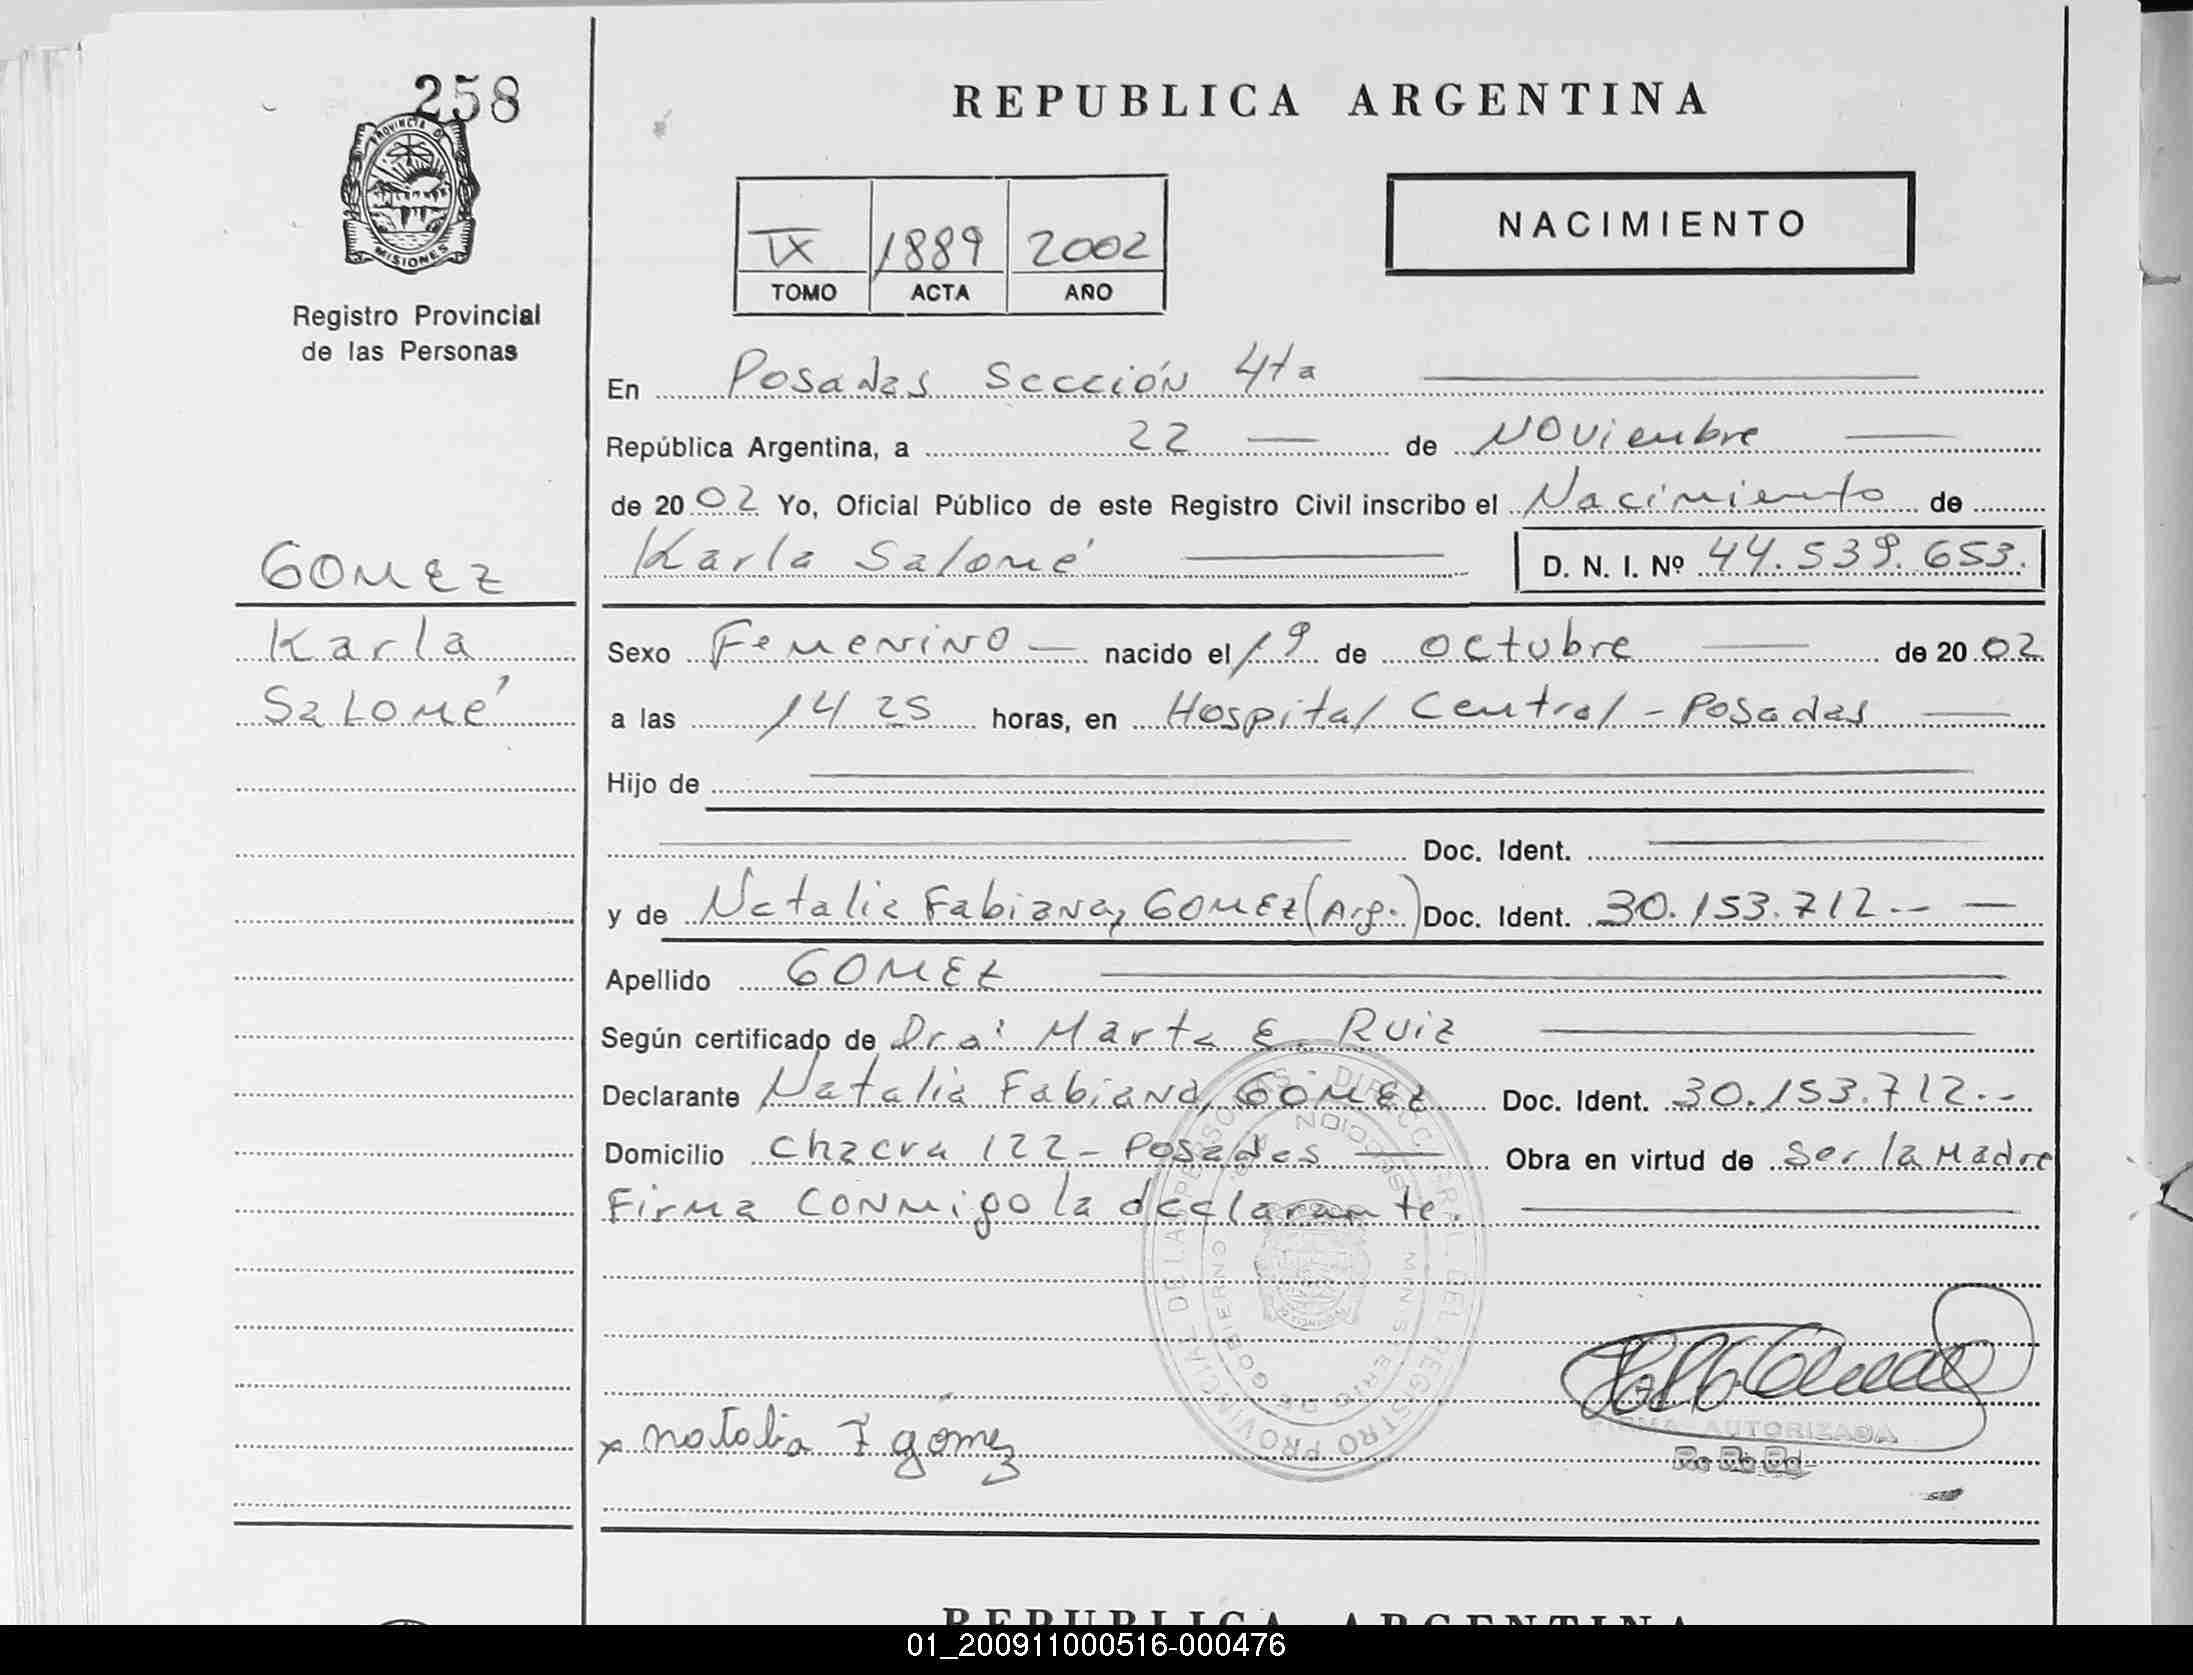 258
PROVINCIA D
MISIONES
Registro Provincial
de las Personas
GOMEZ
Karla
Salomé
REPUBLICA ARGENTINA
IX 1889 2002
TOMO ACTA AÑO
NACIMIENTO
En Posadas Sección 4ta
República Argentina, a 22 de Noviembre
de 2002 Yo, Oficial Público de este Registro Civil inscribo el Nacimiento de
Karla Salomé D. N. I. Nº 44.539.653.
Sexo Femenino nacido el 19 de octubre de 2002
a las 14 25 horas, en Hospital Central - Posadas
Hijo de
Doc. Ident.
y de Natalia Fabiana, GOMEZ (Arg.) Doc. Ident. 30.153.712.-
Apellido GOMEZ
Según certificado de Dra: Marta E. Ruiz
Declarante Natalia Fabiana, GOMEZ Doc. Ident. 30.153.712.-
Domicilio Chacra 122 - Posadas Obra en virtud de ser la Madre
Firma conmigo la declarante.
DIRECC GRAL DEL REGISTRO PROVINCIAL DE LAS PERSONAS
MINISTERIO DE GOBIERNO
x natalia F gomez
FIRMA AUTORIZADA
REPUBLICA ARGENTINA
01_200911000516-000476